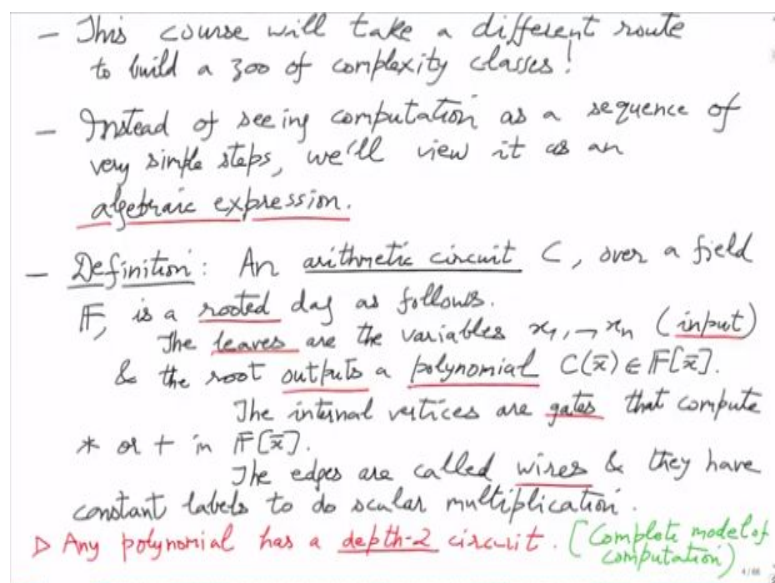 - This course will take a different route
to build a zoo of complexity classes!
- Instead of seeing computation as a sequence of
very simple steps, we'll view it as an
algebraic expression.
- Definition: An arithmetic circuit C, over a field
𝔽, is a rooted dag as follows.
The leaves are the variables x₁,⋯,xₙ (input)
& the root outputs a polynomial C(x̄) ∈ 𝔽[x̄].
The internal vertices are gates that compute
* or + in 𝔽[x̄].
The edges are called wires & they have
constant labels to do scalar multiplication.
▷ Any polynomial has a depth-2 circuit. [Complete model of
computation)
4/66